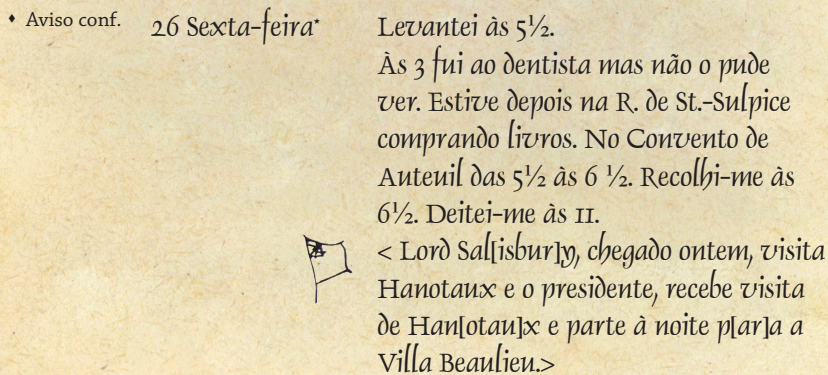 ♦ Aviso conf.
26 Sexta-feira*
Levantei às 5½.
Às 3 fui ao dentista mas não o pude
ver. Estive depois na R. de St.-Sulpice
comprando livros. No Convento de
Auteuil das 5½ às 6 ½. Recolhi-me às
6½. Deitei-me às 11.
< Lord Sal[isbur]y, chegado ontem, visita
Hanotaux e o presidente, recebe visita
de Han[otau]x e parte à noite p[ar]a a
Villa Beaulieu.>